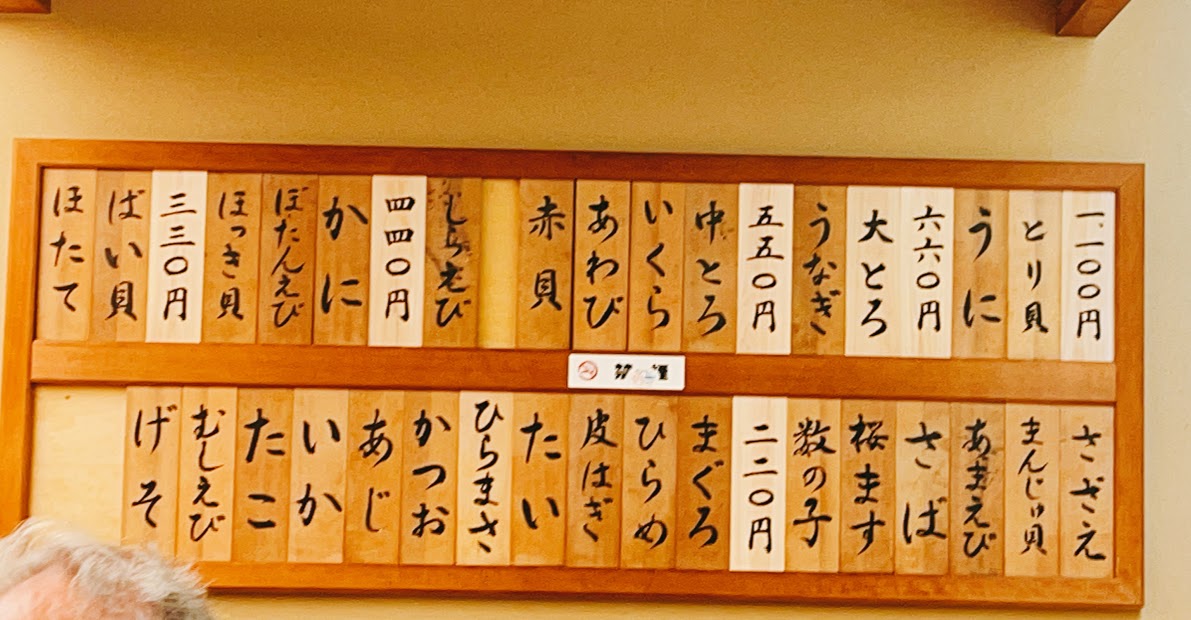 一、一〇〇円
とり貝
うに
六六〇円
大とろ
うなぎ
五五〇円
中とろ
いくら
あわび
赤貝
しらえび
四四〇円
かに
ぼたんえび
ほっき貝
三三〇円
ばい貝
ほたて
さざえ
まんじゅ貝
あまえび
さば
桜ます
数の子
二二〇円
まぐろ
ひらめ
皮はぎ
たい
ひらまさ
かつお
あじ
いか
たこ
むしえび
げそ